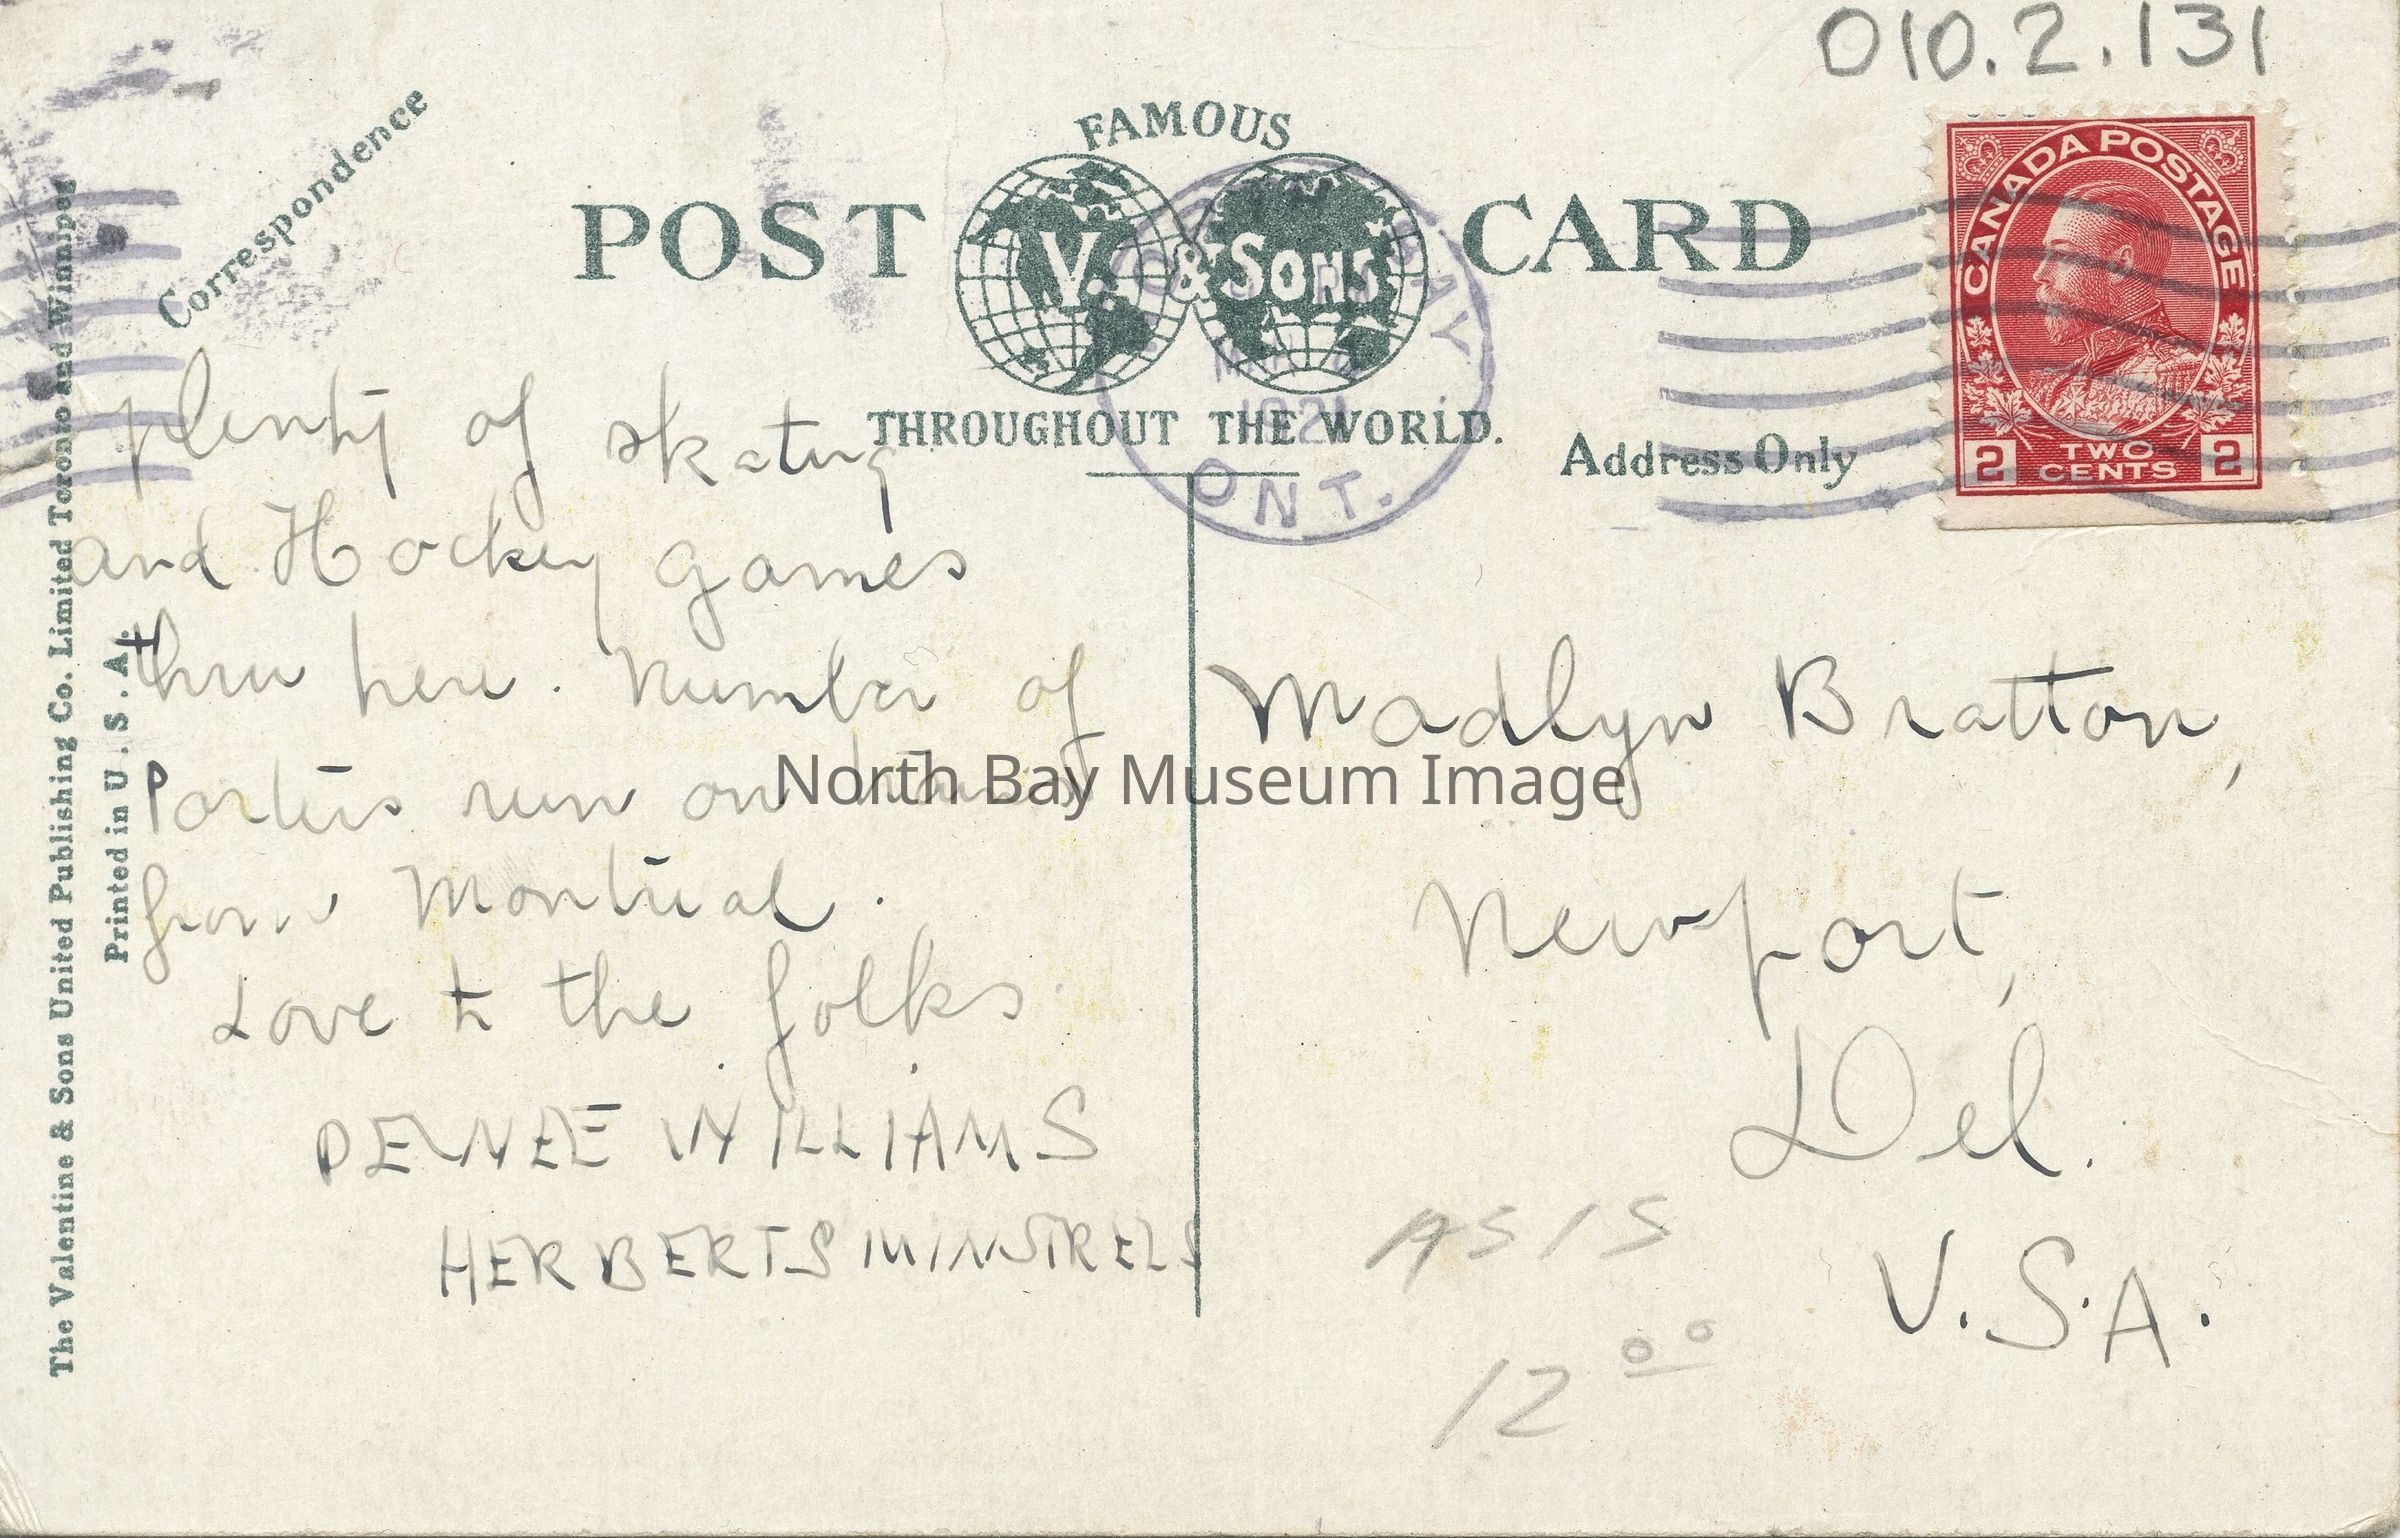 010.2.131
Correspondence
FAMOUS
POST V. & SONS CARD
THROUGHOUT THE WORLD.
Address Only
CANADA POSTAGE
2 TWO CENTS 2
BAY
1921
ONT.
The Valentine & Sons United Publishing Co. Limited Toronto and Winnipeg
Printed in U.S.A.
Plenty of skating
and Hockey games
thru here. Number of
Porters run on
from Montreal.
Love to the folks
WILLIAMS
HERBERTS MINSTRELS
Madlyn Bratton,
Newport,
Del.
U.S.A.
AS IS
12 00
North Bay Museum Image